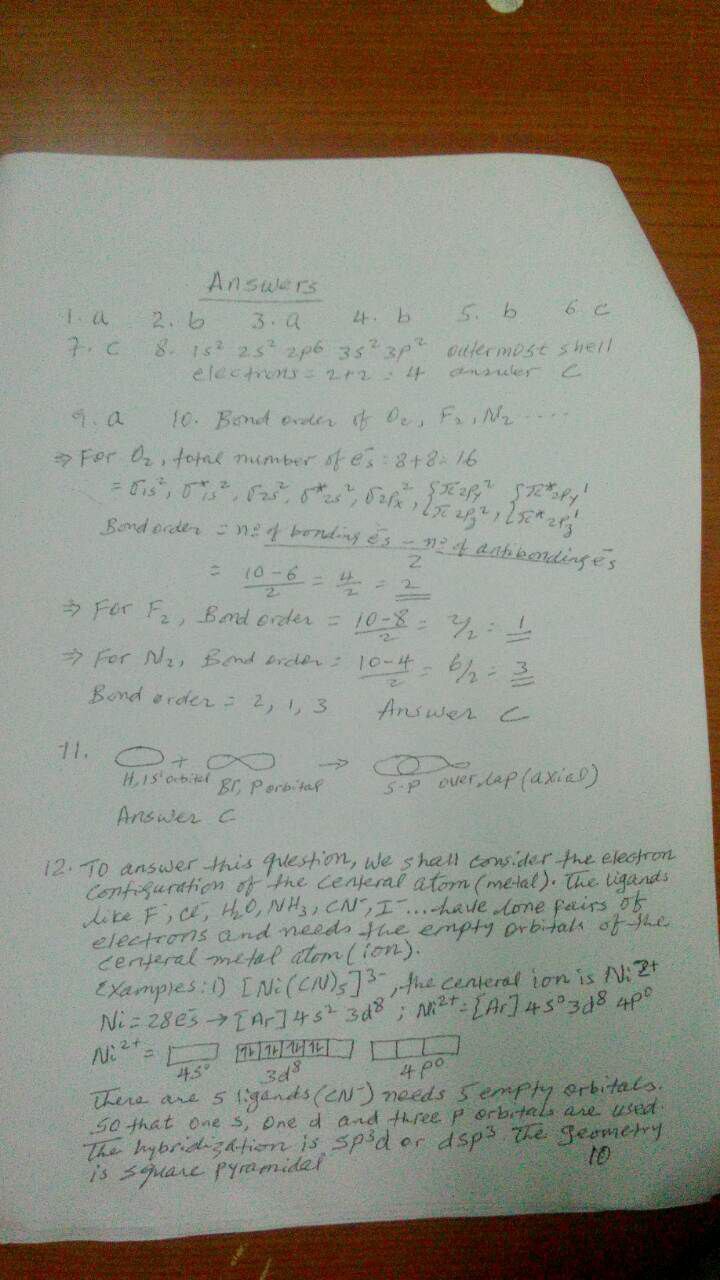 Answers
1. a 2. b 3. a 4. b 5. b 6. c
7. c 8. 1s² 2s² 2p⁶ 3s² 3p² outermost shell
electrons = 2+2 = 4 answer C
9. a 10. Bond order of O₂, F₂, N₂ .....
⇒ For O₂, total number of e⁻s = 8+8 = 16
= σ1s², σ*1s², σ2s², σ*2s², σ2px², {π2py² {π*2py¹
π2pz², π*2pz¹
Bond order = nº of bonding e⁻s − nº of antibonding e⁻s
2
= 10-6/2 = 4/2 = 2
⇒ For F₂, Bond order = 10-8/2 = 2/2 = 1
⇒ For N₂, Bond order = 10-4/2 = 6/2 = 3
Bond order = 2, 1, 3 Answer C
11. + →
H, 1s¹ orbital Br, P orbital S-P over lap (axial)
Answer C
12. To answer this question, we shall consider the electron
configuration of the centeral atom (metal). The ligands
like F⁻, Cl⁻, H₂O, NH₃, CN⁻, I⁻ ... have lone pairs of
electrons and needs the empty orbitals of the
centeral metal atom (ion).
Examples: 1) [Ni(CN)₅]³⁻, the centeral ion is Ni²⁺
Ni = 28e⁻s → [Ar] 4s² 3d⁸ ; Ni²⁺ = [Ar] 4s⁰ 3d⁸ 4p⁰
Ni²⁺ = ⥮ ⥮ ⥮ ⥮
4s⁰ 3d⁸ 4p⁰
There are 5 ligands (CN⁻) needs 5 empty orbitals.
So that one s, one d and three p orbitals are used.
The hybridization is sp³d or dsp³. The geometry
is square pyramidal 10